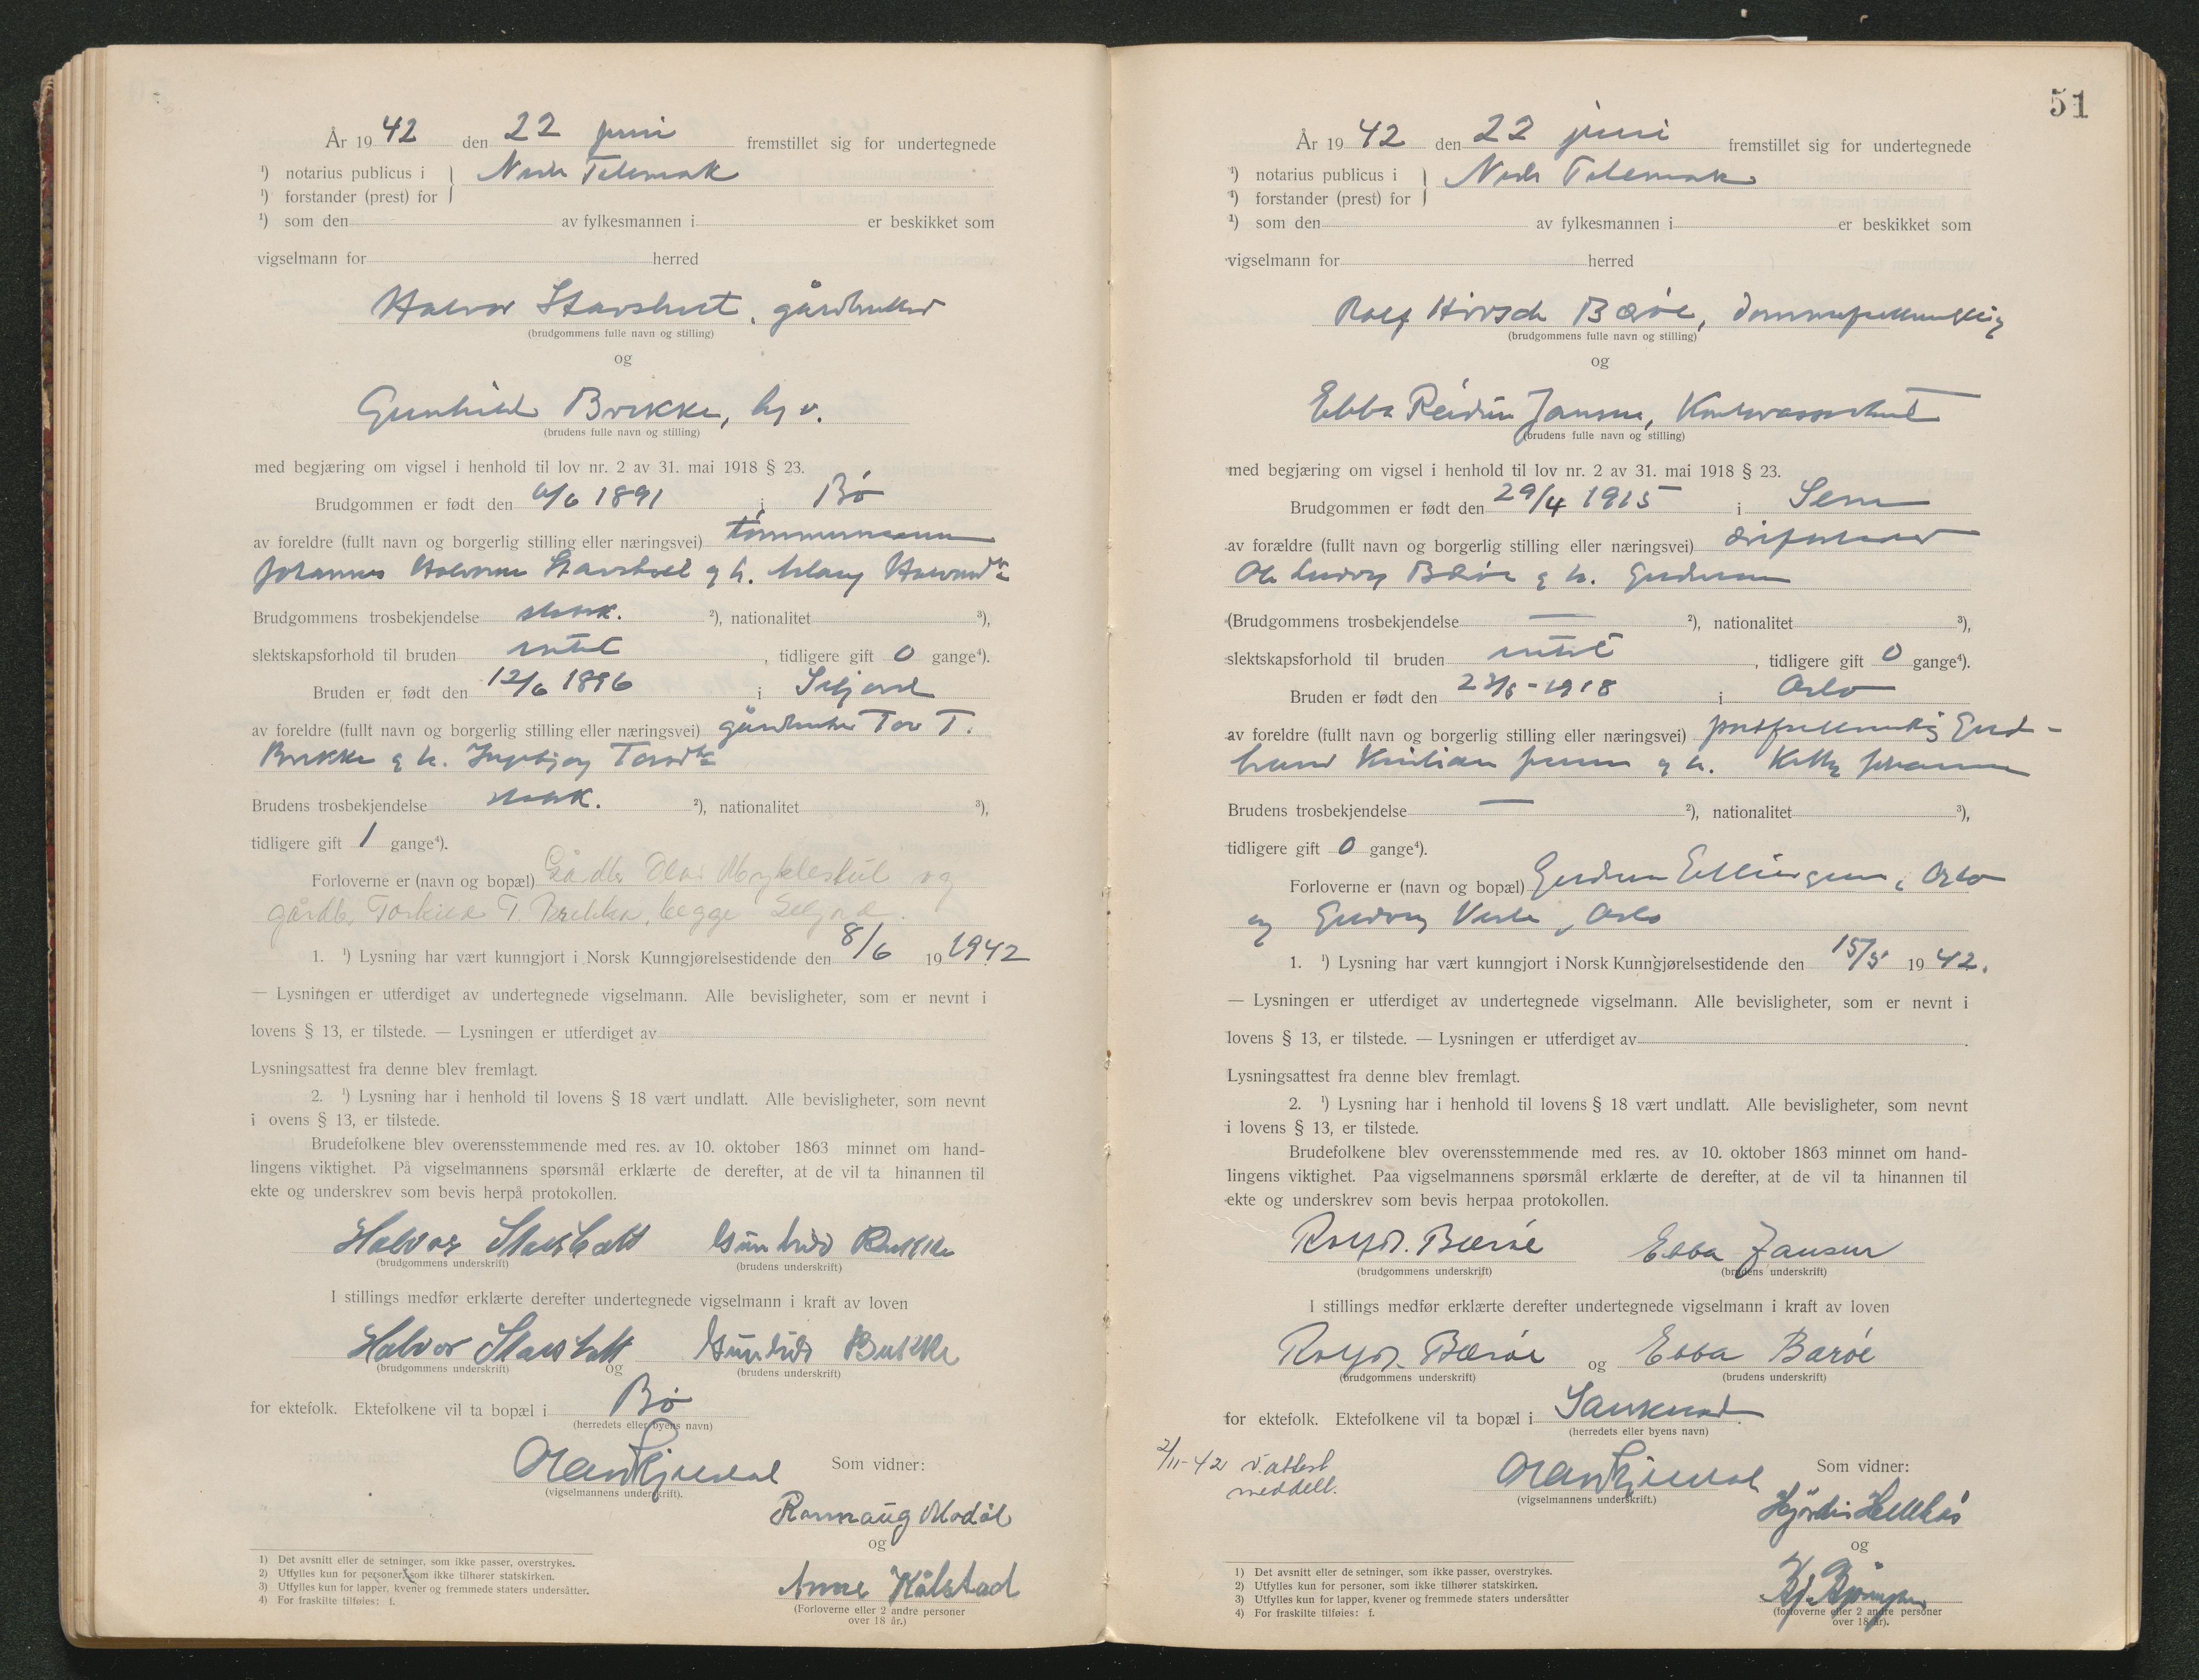 År 19 42 den 22 juni fremstillet sig for undertegnede
¹) notarius publicus i
¹) forstander (prest) for } Nedr Telemark
¹) som den av fylkesmannen i er beskikket som
vigselmann for herred
Halvor gårdbruker
(brudgommens fulle navn og stilling)
og
Gunhild Brekke,
(brudens fulle navn og stilling)
med begjæring om vigsel i henhold til lov nr. 2 av 31. mai 1918 § 23.
Brudgommen er født den 6/6 1891 i Bø
av foreldre (fullt navn og borgerlig stilling eller næringsvei) tømmermann
Johannes Halvorsen
Brudgommens trosbekjendelse ²), nationalitet ³),
slektskapsforhold til bruden intet , tidligere gift 0 gange⁴).
Bruden er født den 12/6 1896 i Seljord
av foreldre (fullt navn og borgerlig stilling eller næringsvei) gårdbruker Tov T.
Brekke g h. Ingebjørg
Brudens trosbekjendelse ²), nationalitet ³),
tidligere gift 1 gange⁴).
Forloverne er (navn og bopæl) Gådbr Olav Myklestul og
gårdb. Torkild T. Brekke, begge Seljord.
1. ¹) Lysning har vært kunngjort i Norsk Kunngjørelsestidende den 8/6 19 1942
— Lysningen er utferdiget av undertegnede vigselmann. Alle bevisligheter, som er nevnt i
lovens § 13, er tilstede. — Lysningen er utferdiget av
Lysningsattest fra denne blev fremlagt.
2. ¹) Lysning har i henhold til lovens § 18 vært undlatt. Alle bevisligheter, som nevnt
i ovens § 13, er tilstede.
Brudefolkene blev overensstemmende med res. av 10. oktober 1863 minnet om hand-
lingens viktighet. På vigselmannens spørsmål erklærte de derefter, at de vil ta hinannen til
ekte og underskrev som bevis herpå protokollen.
Halvor Gunhild Brekke
(brudgommens underskrift) (brudens underskrift)
I stillings medfør erklærte derefter undertegnede vigselmann i kraft av loven
Halvor Gunhild Brekke
(brudgommens underskrift) og (brudens underskrift)
for ektefolk. Ektefolkene vil ta bopæl i Bø
(herredets eller byens navn)
Som vidner:
(vigselmannens underskrift).
Rannaug
og
Anne Kålstad
(Forloverne eller 2 andre personer
over 18 år.)
1) Det avsnitt eller de setninger, som ikke passer, overstrykes.
2) Utfylles kun for personer, som ikke tilhører statskirken.
3) Utfylles kun for lapper, kvener og fremmede staters undersåtter.
4) For fraskilte tilføies: f.
51
År 19 42 den 22 juni fremstillet sig for undertegnede
¹) notarius publicus i
¹) forstander (prest) for } Nedr Telemark
¹) som den av fylkesmannen i er beskikket som
vigselmann for herred
Rolf Hirsch Barøe, dommerfullmektig
(brudgommens fulle navn og stilling)
og
Ebba Reidun Jansen, Kontorassistent
(brudens fulle navn og stilling)
med begjæring om vigsel i henhold til lov nr. 2 av 31. mai 1918 § 23.
Brudgommen er født den 29/4 1915 i Sem
av forældre (fullt navn og borgerlig stilling eller næringsvei)
Ole Ludvig Barøe g h.
(Brudgommens trosbekjendelse — ²), nationalitet ³),
slektskapsforhold til bruden intet , tidligere gift 0 gange⁴).
Bruden er født den 1918 i Oslo
av foreldre (fullt navn og borgerlig stilling eller næringsvei) postfullmektig Gud-
brand Kristian Jansen g h. Johanne
Brudens trosbekjendelse — ²), nationalitet ³),
tidligere gift 0 gange⁴).
Forloverne er (navn og bopæl) Gudrun Ellingsen, Oslo
og Oslo
1. ¹) Lysning har vært kunngjort i Norsk Kunngjørelsestidende den 15/5 19 42.
— Lysningen er utferdiget av undertegnede vigselmann. Alle bevisligheter, som er nevnt i
lovens § 13, er tilstede. — Lysningen er utferdiget av
Lysningsattest fra denne blev fremlagt.
2. ¹) Lysning har i henhold til lovens § 18 vært undlatt. Alle bevisligheter, som nevnt
i lovens § 13, er tilstede.
Brudefolkene blev overensstemmende med res. av 10. oktober 1863 minnet om hand-
lingens viktighet. Paa vigselmannens spørsmål erklærte de derefter, at de vil ta hinannen til
ekte og underskrev som bevis herpaa protokollen.
Rolf H. Barøe Ebba Jansen
(brudgommens underskrift) (brudens underskrift)
I stillings medfør erklærte derefter undertegnede vigselmann i kraft av loven
Rolf H. Barøe og Ebba Barøe
(brudgommens underskrift) (brudens underskrift)
for ektefolk. Ektefolkene vil ta bopæl i Sauherad
(herredets eller byens navn)
2/11-42 v.attest
meddelt.
Som vidner:
(vigselmannens underskrift.)
Hjørdis
og
(forloverne eller 2 andre personer
over 18 år).
1) Det avsnitt eller de setninger, som ikke passer, overstrykes.
2) Utfylles kun for personer, som ikke tilhører statskirken.
3) Utfylles kun for lapper, kvener og fremmede staters undersåtter
4) For fraskilte tilføies: f.